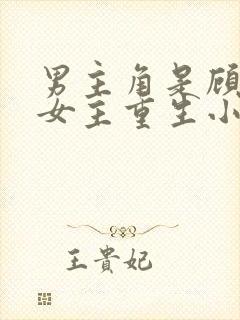 男主角是顾
女主重生小
王貴妃